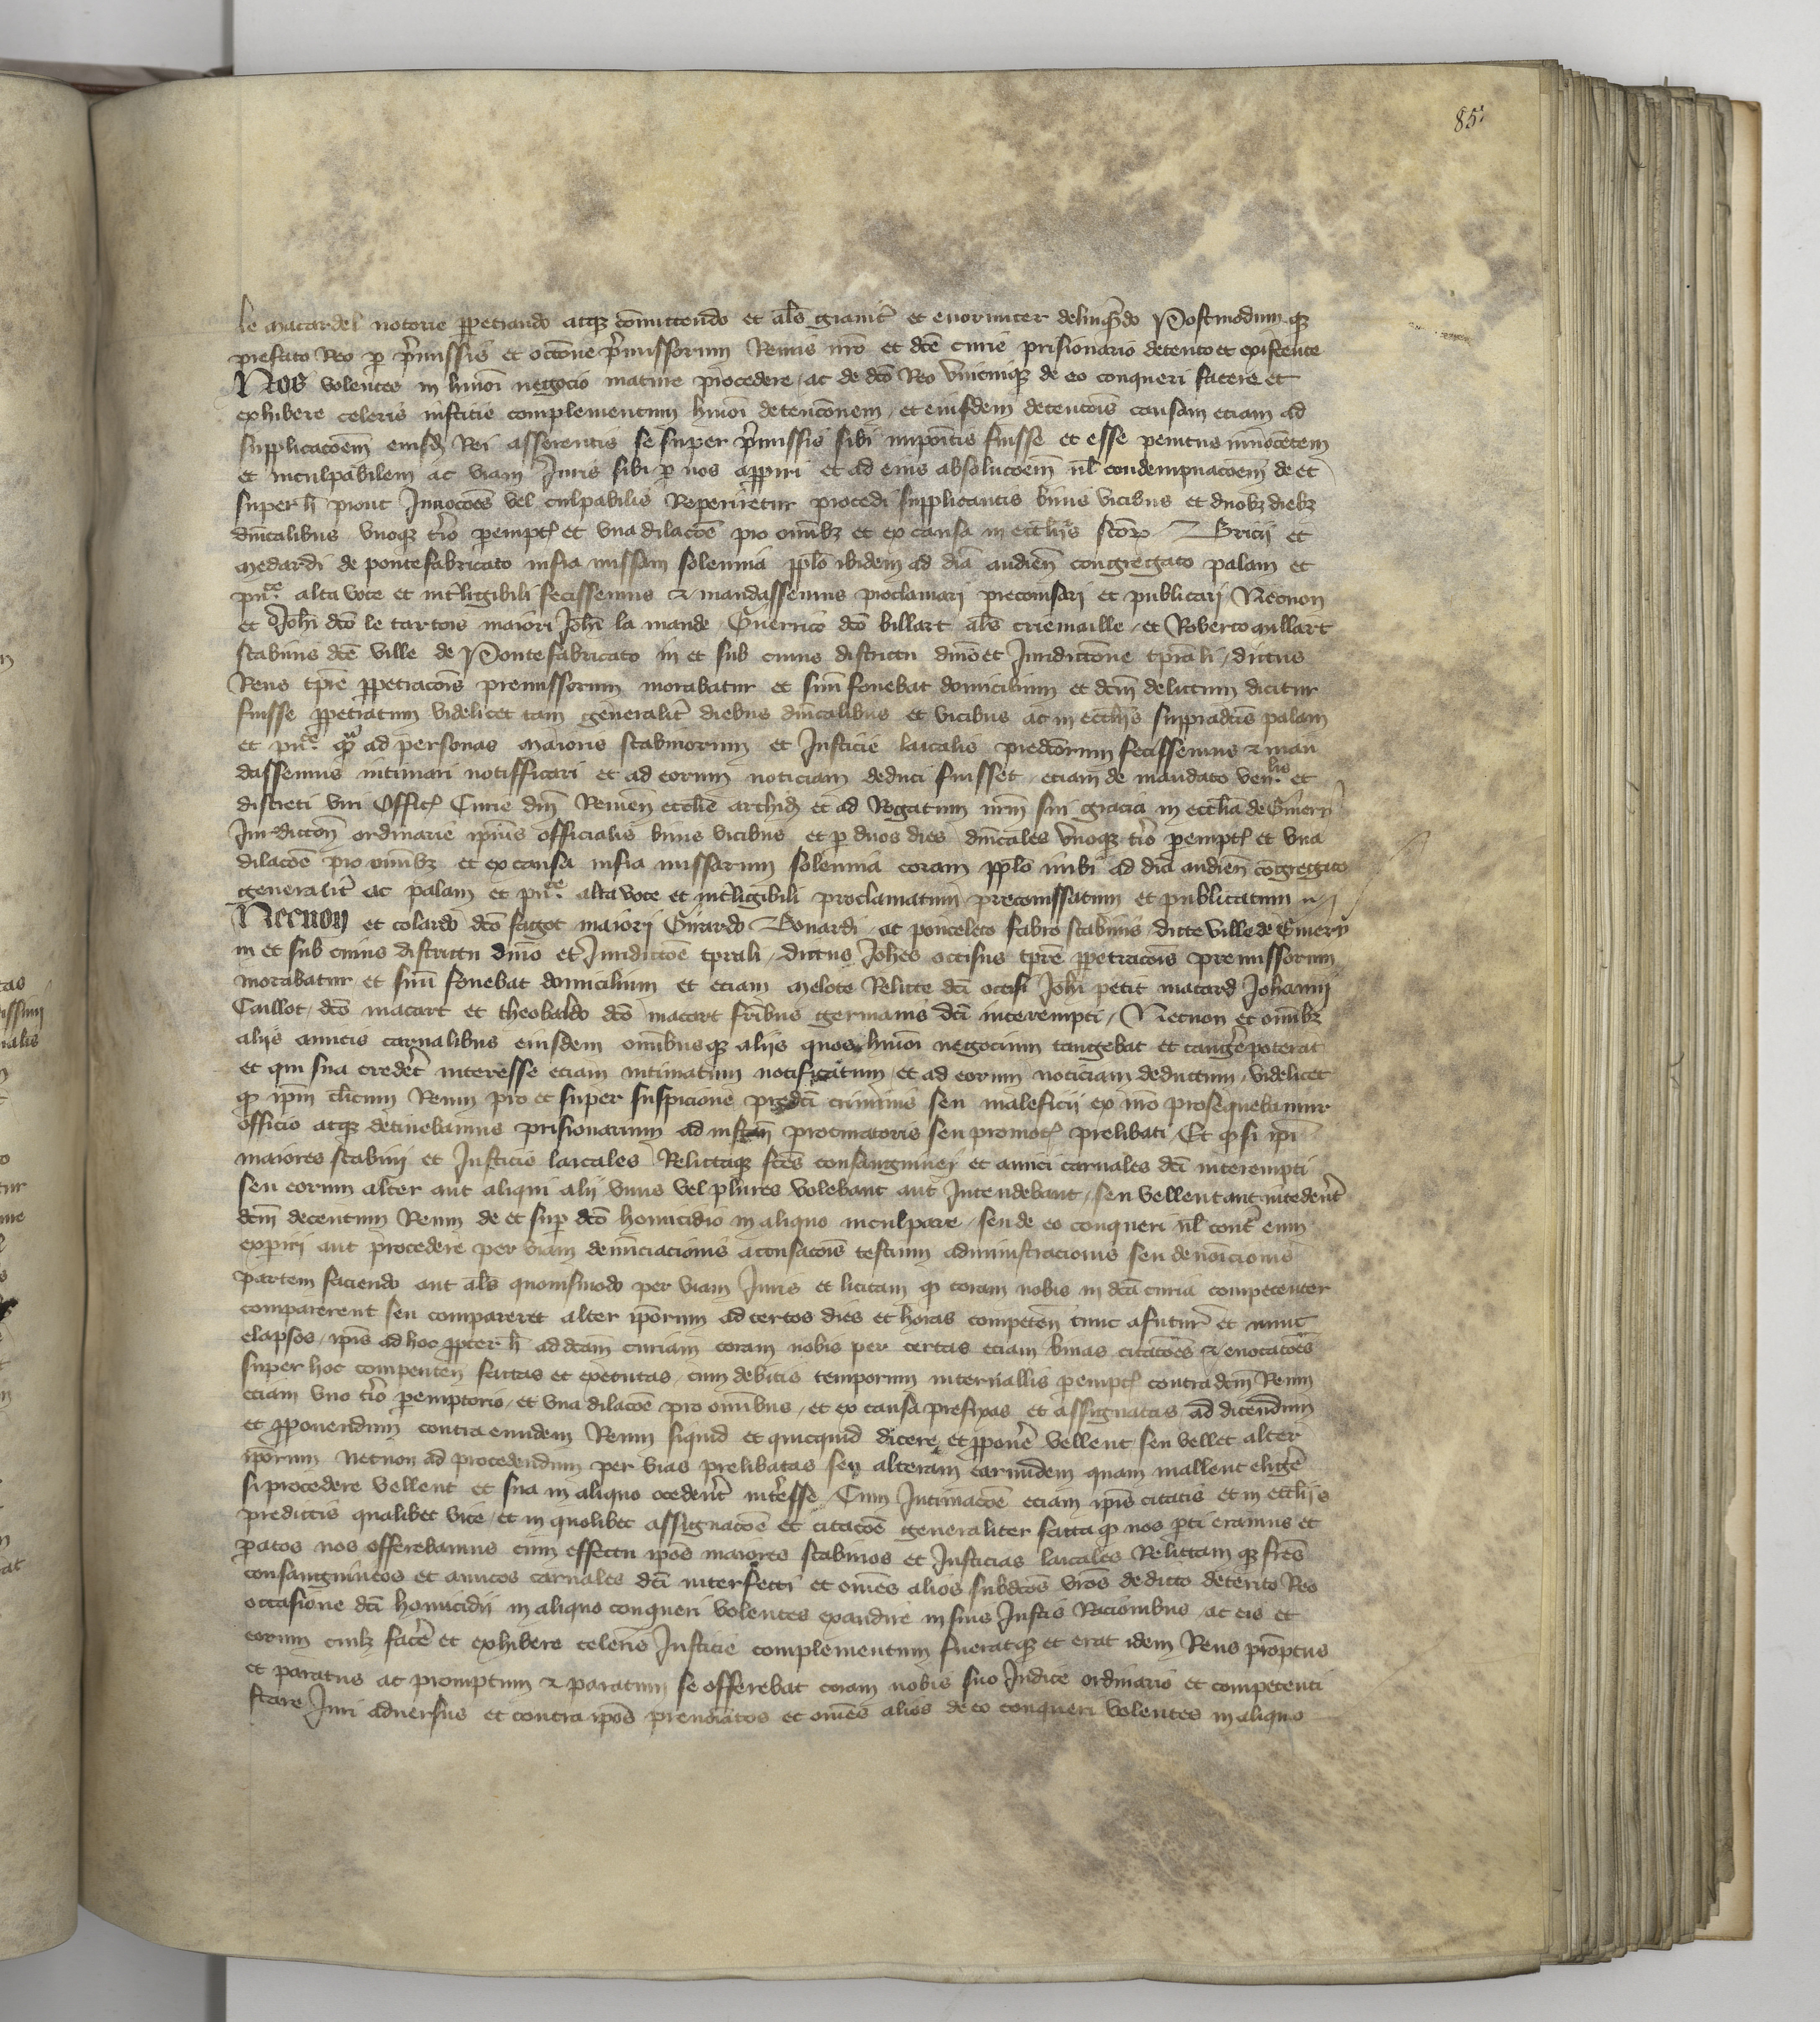 85
le macardel notorie ꝑpetrando atqꝫ cōmittendo et al̄s grauit̄ et enormiter delinq̄ndo Postmodum qꝫ
prefato Reo ꝑ p̄missis et occōne p̄missorum Remis nr̄o et dc̄e curie prisionario detento et existente
Nos volentes in hmōi negocio mature procedere / ac de dc̄o Reo vnicuiqꝫ de eo conqueri facere et
exhibere celeris iusticie complementum hmōi detencōnem / et eiusdem detentōis causam eciam ad
supplicacōem eiusd̄ Rei asserentis se super p̄missis sibi impōitis fuisse et esse penitus innocētem
et inculpabilem ac viam Juris sibi ꝑ nos apꝑiri et ad eius absolucōem ul̄ condempnacōem de et
super h̄ prout Innocēs vel culpabilis Reperiretur procedi supplicantis binis vicibus et duobꝫ diebꝫ
dn̄icalibus vnoqꝫ tr̄io ꝑemptꝭ et vna dilacōe pro om̄ibꝫ et ex causa in eccl̄iis sc̄oꝝ Bricii et
medardi de pontefabricato infra missam solennia pp̄lo ibidem ad diā audien̄ congregato palam et
pu.ᶜᵉ alta voce et intl̄ligibili fecissemus & mandassemus proclamari preconisari et publicari Necnon
et Joh̄i dc̄o le tartois maiori Joh̄i la mande Guerrico dc̄o billart al̄s criemaille / et Roberto millart
scabinis dc̄e ville de Pontefabricato in et sub cuius districtu dn̄io et Juridictōne tp̄rali / dictus
Reus tp̄re ꝑpetracōis premissorum morabatur et suū fouebat domicilium et dc̄m delictum dicitur
fuisse ꝑpetratum videlicet tam generalit̄ diebus dn̄icalibus et vicibus ac in eccl̄iis supradc̄is palam
et pu.ᶜᵉ qᵃ ad personas maioris scabinorum et Justicie laicalis predc̄orum fecissemus & man
dassemus intimari notifficari et ad eorum noticiam deduci fuisset / eciam de mandato ven.ˡⁱˢ et
discreti viri Officꝭ Curie dn̄i Remen̄ eccl̄ie archid̄ et ad Rogatum nr̄m sui gracia in eccl̄ia de Giuery
Jurdictōn ordinarie ip̄ius officialis binis vicibus et ꝑ duos dies dn̄icales vnoqꝫ tr̄io ꝑemptꝭ et vna
dilacōe pro om̄ibꝫ et ex causa infra missarum solennia coram pp̄lo inibi ad diā audien̄ cōgregato
generalit̄ ac palam et pu.ᶜᵉ alta voce et intl̄ligibili proclamatum preconissatum et publicatum
Necnon et colardo dc̄o fagot maiori Girardo Bonardi / ac ponceleto fabro scabinis / dicte ville de Giuery
in et sub cuius districtu dn̄io et Juridictōe tp̄rali / dictus Joh̄es occisus tp̄re ꝑpetracōis premissorum
morabatur et suū fouebat domicilium et eciam melote Relicte dc̄i occisi Joh̄i petit macard Johanni
Caillot / dc̄o macart et theobaldo dc̄o macart fr̄ibus germanis dc̄i interempti / Necnon et om̄ibꝫ
aliis amicis carnalibus eiusdem om̄ibusqꝫ aliis quos hmōi negocium tangebat et tangr̄e poterat
et qui sua credēt interesse eciam intimatum notificatum / et ad eorum noticiam deductum / videlicet
ꝙ ip̄m cl̄icum Reum pro et super suspicione predc̄i criminis seu maleficii ex nr̄o prosequebamur
officio atqꝫ detinebamus prisionarium ad instan̄ procuratoris seu promotꝭ prelibati / Et ꝙ si ip̄i
maiores scabini et Justicie laicales Relictaqꝫ fr̄es consanguinei et amici carnales dc̄i interempti
seu eorum alter aut aliqui alii vnus vel plures volebant aut Intendebant / seu vellent aut intēderēt
dc̄m detentum Reum de et suꝑ dc̄o homicidio in aliquo inculpare / seu de eo conqueri ul̄ contr̄ eum
expiri aut procedere per viam denunciacionis accusacōis testium administracionis seu denōicionis
partem faciendo aut al̄s quouismodo per viam Juris et licitam ꝙ coram nobis in dc̄a curia competenter
comparerent seu compareret alter ip̄orum ad certos dies et horas competen̄ tunc afutur̄ et nunc
elapsos / ip̄is ad hoc ꝓpter h̄ ad dc̄am curiam coram nobis per certas eciam binas citacōes & euocacōes
super hoc competen̄ factas et executas / cum debitis temporum interuallis ꝑemptꝭ contra dc̄m Reum
eciam vno tr̄io ꝑemptorio / et vna dilacōe pro om̄ibus / et ex causa prefixas et assignatas / ad dicendum
et ꝓponendum contra eundem Reum siquid et quicquid dicere et ꝓponēr vellent seu vellet alter
ip̄orum Necnon ad procedendum per vias prelibatas seu alteram earumdem quam mallent eligēr
si procedere vellent et sua in aliquo crederēt int̄esse / Cum Intimacōe eciam ip̄is citatis et in eccl̄iis
predictis qualibet vice / et in quolibet assignacōe et citacōe generaliter facta ꝙ nos ꝑti eramus et
ꝑatos nos offerebamus cum effectu ip̄os maiores scabinos et Justicias laicales Relictam qꝫ fr̄es
consanguineos et amicos carnales dc̄i interfecti et om̄es alios subdc̄os vr̄os de dicto detento Reo
occasione dc̄i homicidii in aliquo conqueri volentes exaudire in suis Justis Racionibus / ac eis et
eorum cuilꝫ facēr et exhibere celeris Justicie complementum fueratqꝫ et erat idem Reus prōptus
et paratus ac promptum & paratum se offerebat coram nobis suo Judice ordinario et competenti
stare Juri aduersus et contra ip̄os prenōiatos et om̄es alios de eo conqueri volentes in aliquo